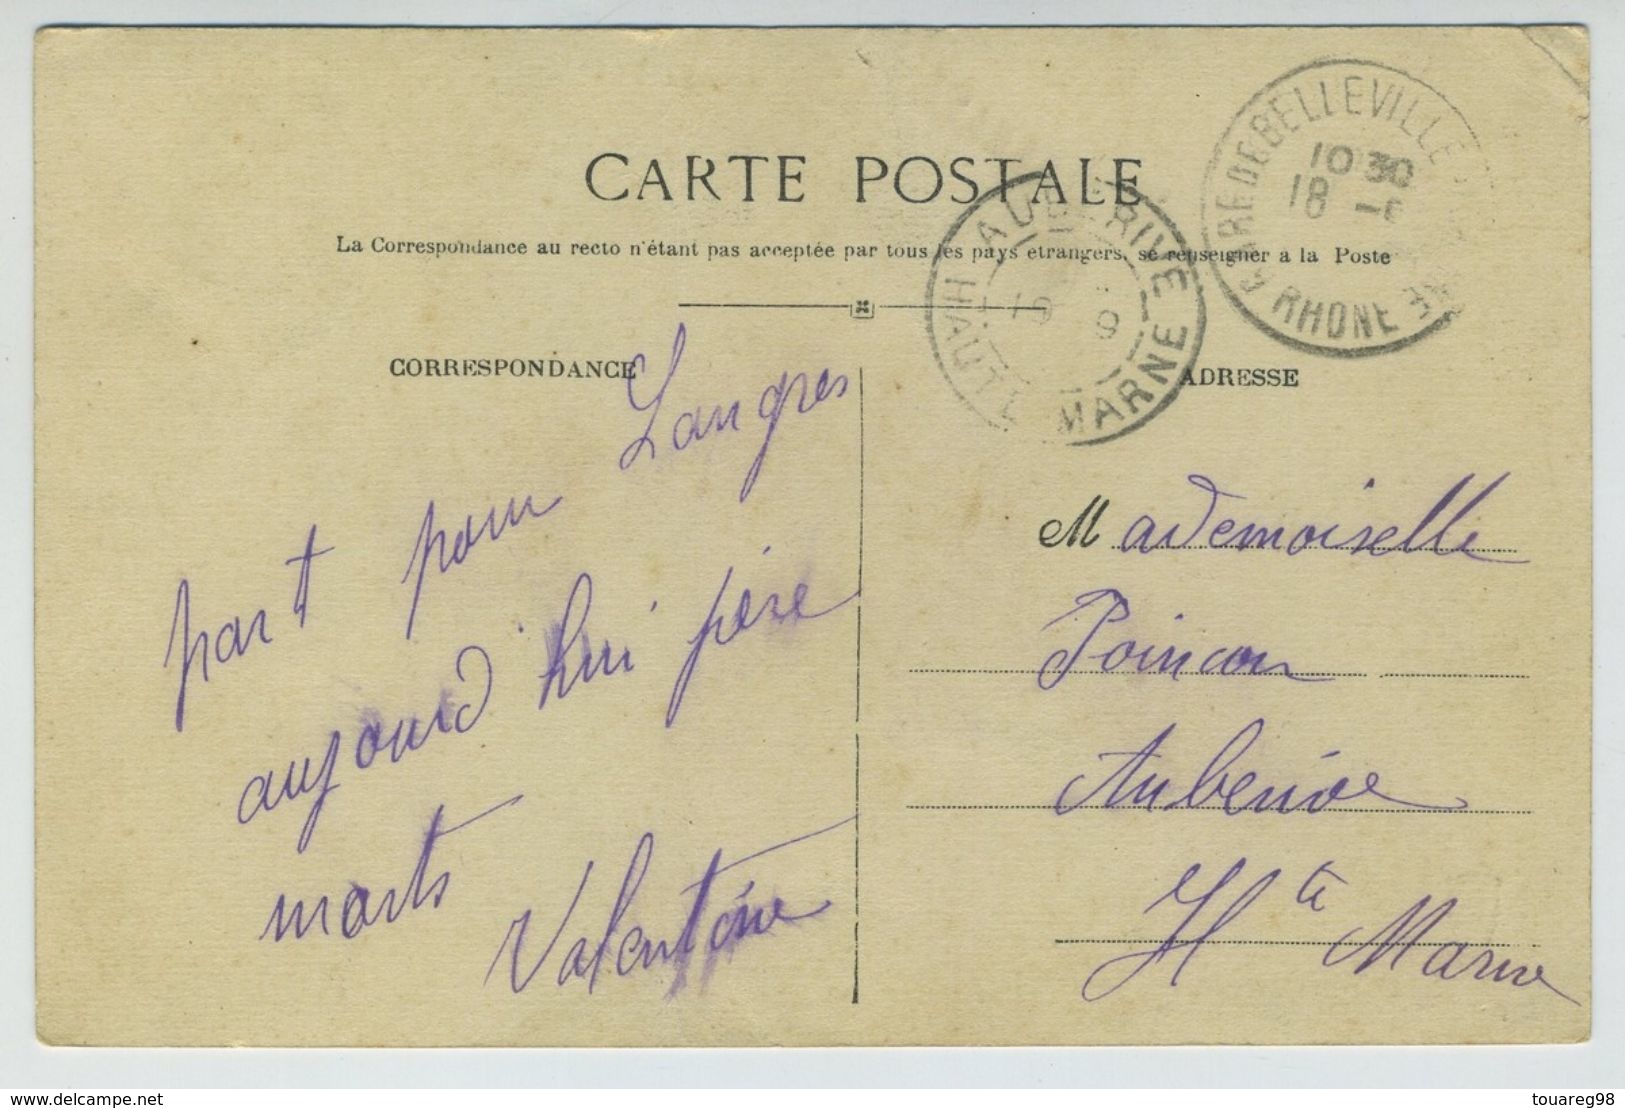 CARTE POSTALE
La Correspondance au recto n'étant pas acceptée par tous les pays étrangers, se renseigner a la Poste
CORRESPONDANCE
ADRESSE
GARE DE BELLEVILLE
10 30
18
RHONE
AUBERIVE
19 9
HAUTE MARNE
part pour Langres
aujourd'hui père
morts
Valentine
Mademoiselle
Poincon
Auberive
Hte Marne
delcampe.net
touareg98